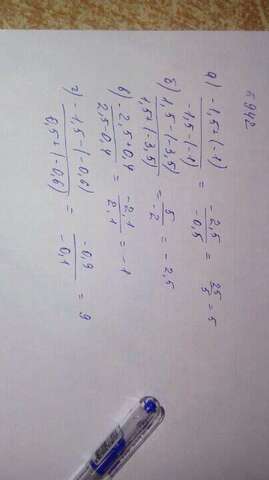 №942
а) -1,5+(-1) / -1,5-(-1) = -2,5 / -0,5 = 25/5 = 5
б) 1,5-(-3,5) / 1,5+(-3,5) = 5 / -2 = -2,5
в) -2,5+0,4 / 2,5-0,4 = -2,1 / 2,1 = -1
г) -1,5-(-0,6) / 0,5+(-0,6) = -0,9 / -0,1 = 9